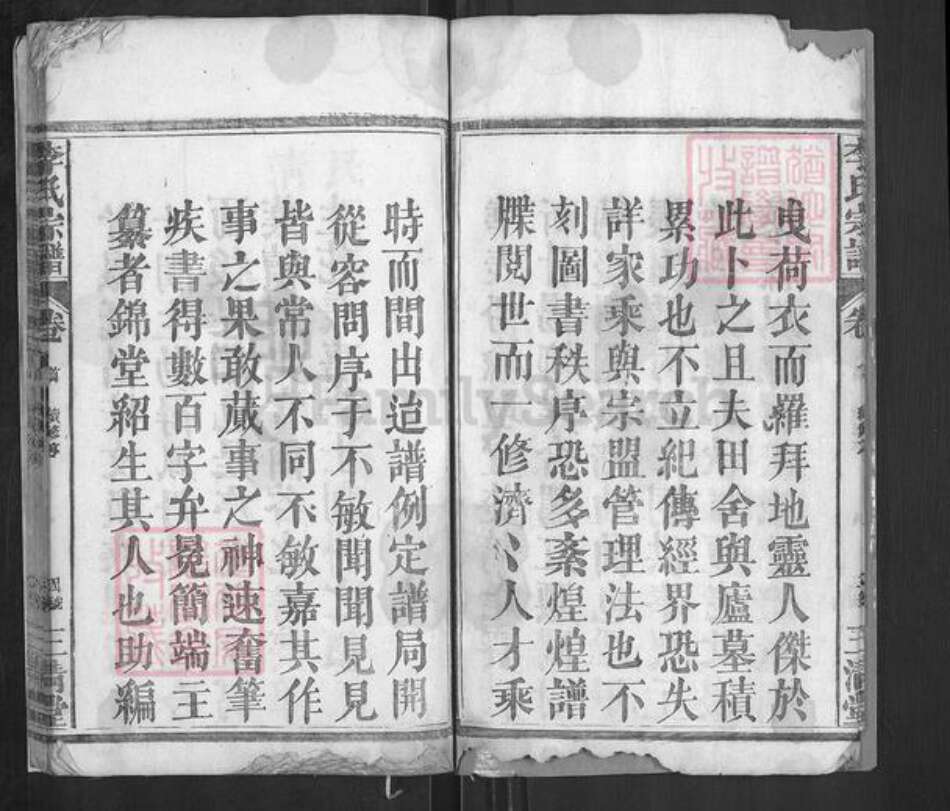 曳荷衣而羅拜地靈人傑於
此卜之且夫田舍與廬墓積
累功也不立紀傳經界恐失
詳家乘與宗盟管理法也不
刻圖書秩序恐多紊煌煌譜
牒閱世而一修濟〻人才乘
時而間出迨譜例定譜局開
從容問序于不敏聞聞見見
皆與常人不同不敏嘉其作
事之果敢蕆事之神速奮筆
疾書得數百字弁冕簡端主
纂者錦堂紹生其人也助編
李氏宗譜
卷首
三清堂
FamilySearch